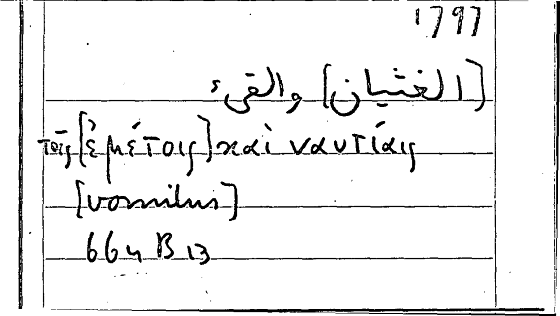 1797
[الغثيان] والقىء
τοῖς [ἐμέτοις] καὶ ναυτίαις
[vomitus]
664 B 13